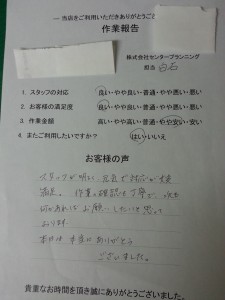 ― 当店をご利用いただきありがとうござ
作業報告
株式会社センタープランニング
担当 白石
1. スタッフの対応 良い・やや良い・普通・やや悪い・悪い
2. お客様の満足度 良い・やや良い・普通・やや悪い・悪い
3. 作業金額 高い・やや高い・普通・やや安い・安い
4. またご利用したいですか? はい・いいえ
お客様の声
スタッフが明るく元気で対応が大変
満足。作業の確認も丁寧で、次も
何かあれば お願いしたいと思って
おります
本日は本当にありがとう
ございました。
貴重なお時間を頂き誠にありがとうございました。